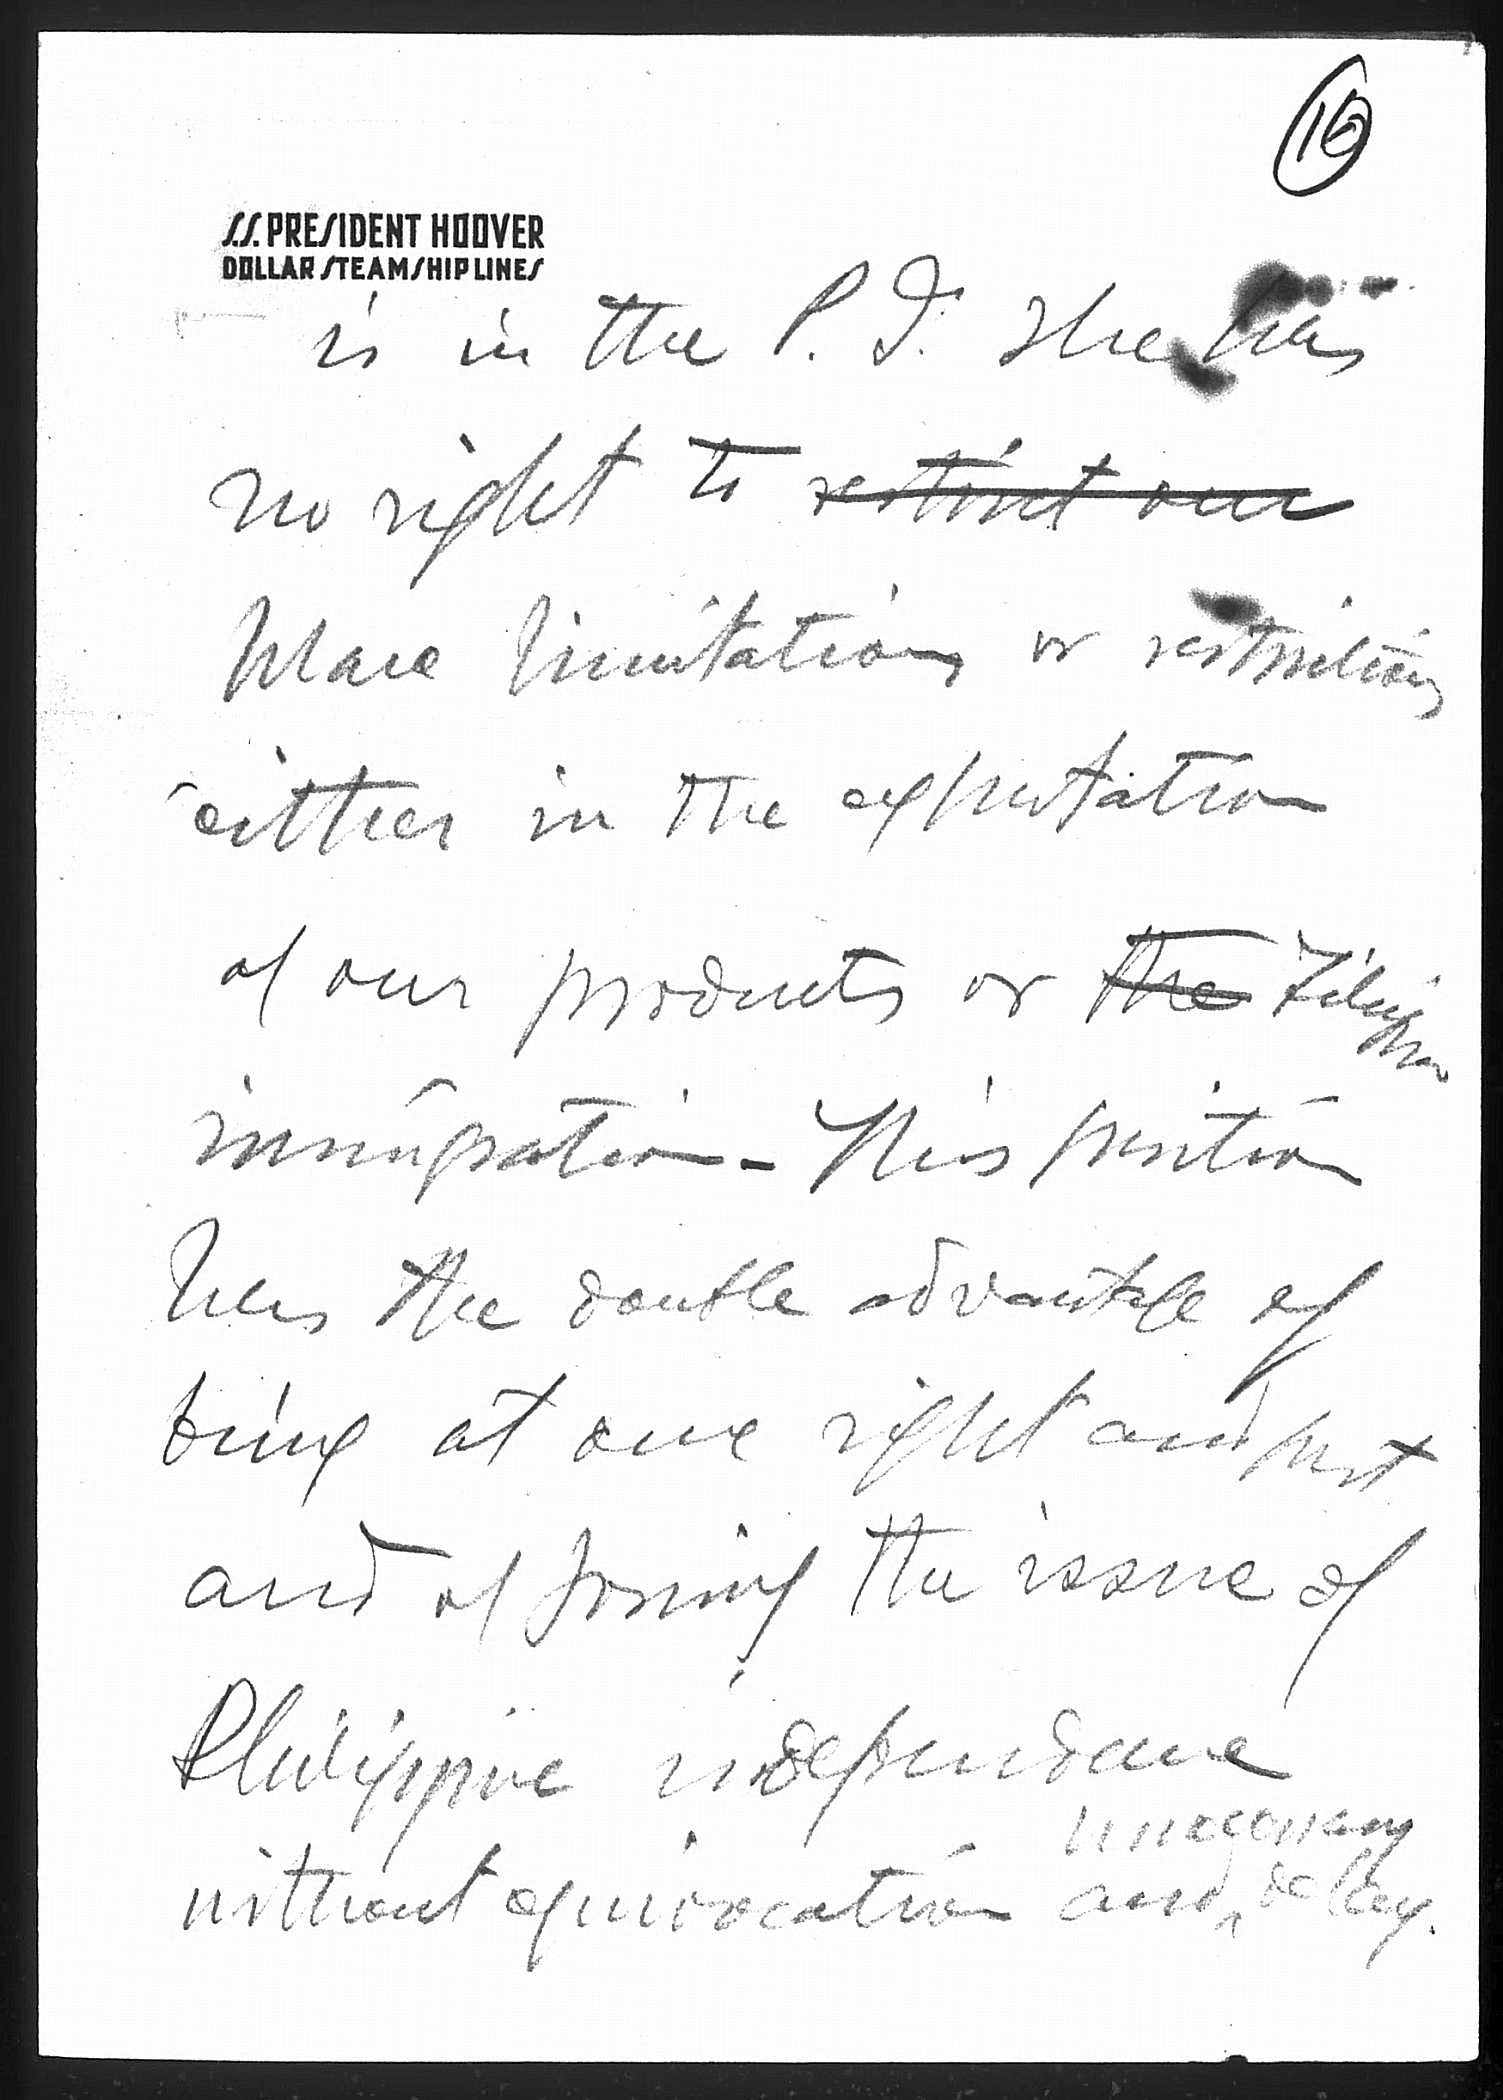 16
S.S. PRESIDENT HOOVER
DOLLAR STEAMSHIP LINES
is in the P. I. she has
no right to restrict our
place limitations or restrictions
either in the exportation
of our products or the Filipino
immigration - This position
has the double advantage of
being at once right and just
and of forcing the issue of
Philippine independence
unnecessary
without equivocation and delay.